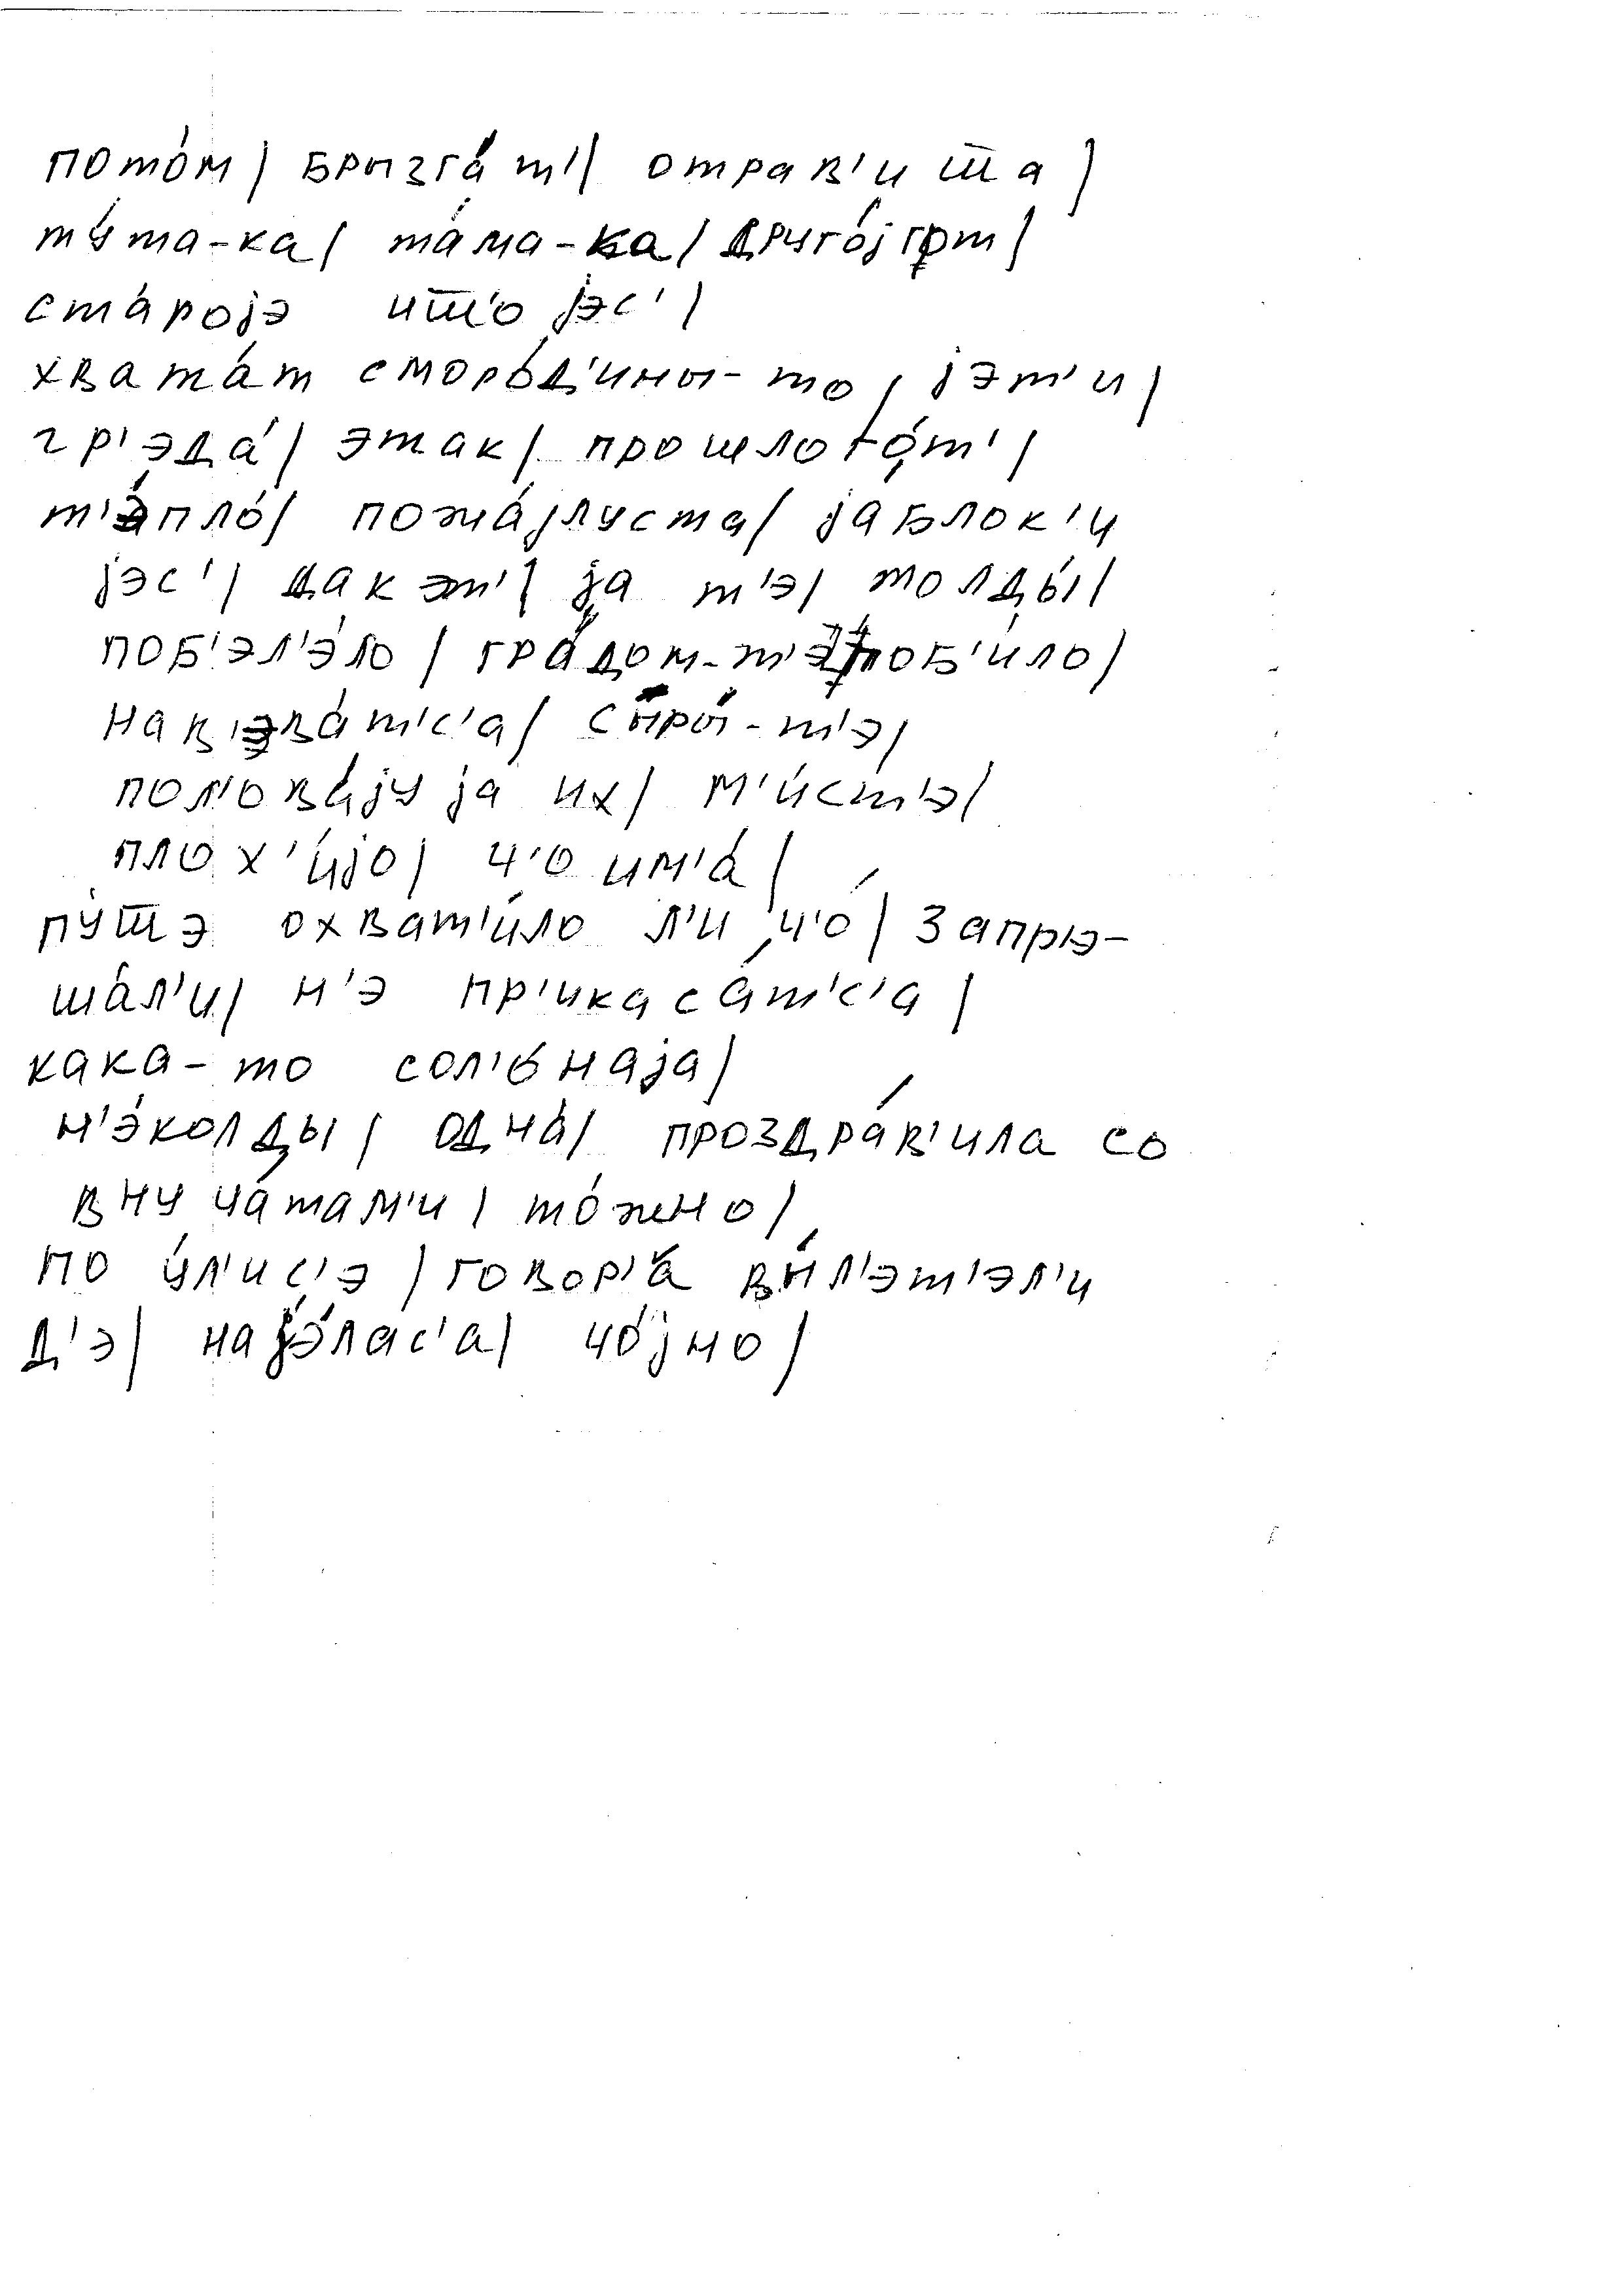 пото́м| брызга́т'| отрав'и ш̅а|
ту́та-ка| та́ма-ка| друго́j гот|
ста́роjэ иш̅'о jэс'|
хвата́т сморо́д'ины-то| jэт'и|
гр'эда́| этак| прошлого́т'|
т'эпло́| пожа́jлуста| jаблок'и
jэс'| дак эт'| jа т'э| толды́|
поб'эл'э́ло| гра́дом-т'э поб'и́ло|
нав'эва́т'с'а| сыры́-т'э|
пол'ова́jу jа их| м'и́ст'э|
плох'и́jо| ч'о им'а́|
пуш̅э охват'и́ло л'и ч'о́| запр'э-
ша́л'и| н'э пр'икаса́т'с'а|
кака-то сол'о́наjа|
н'э́колды| одна́| проздра́в'ила со
внуча́там'и| то́жно|
по у́л'ис'э| говор'а́ вы́л'эт'эл'и
д'э| наjэ́лас'а| чо́jно|